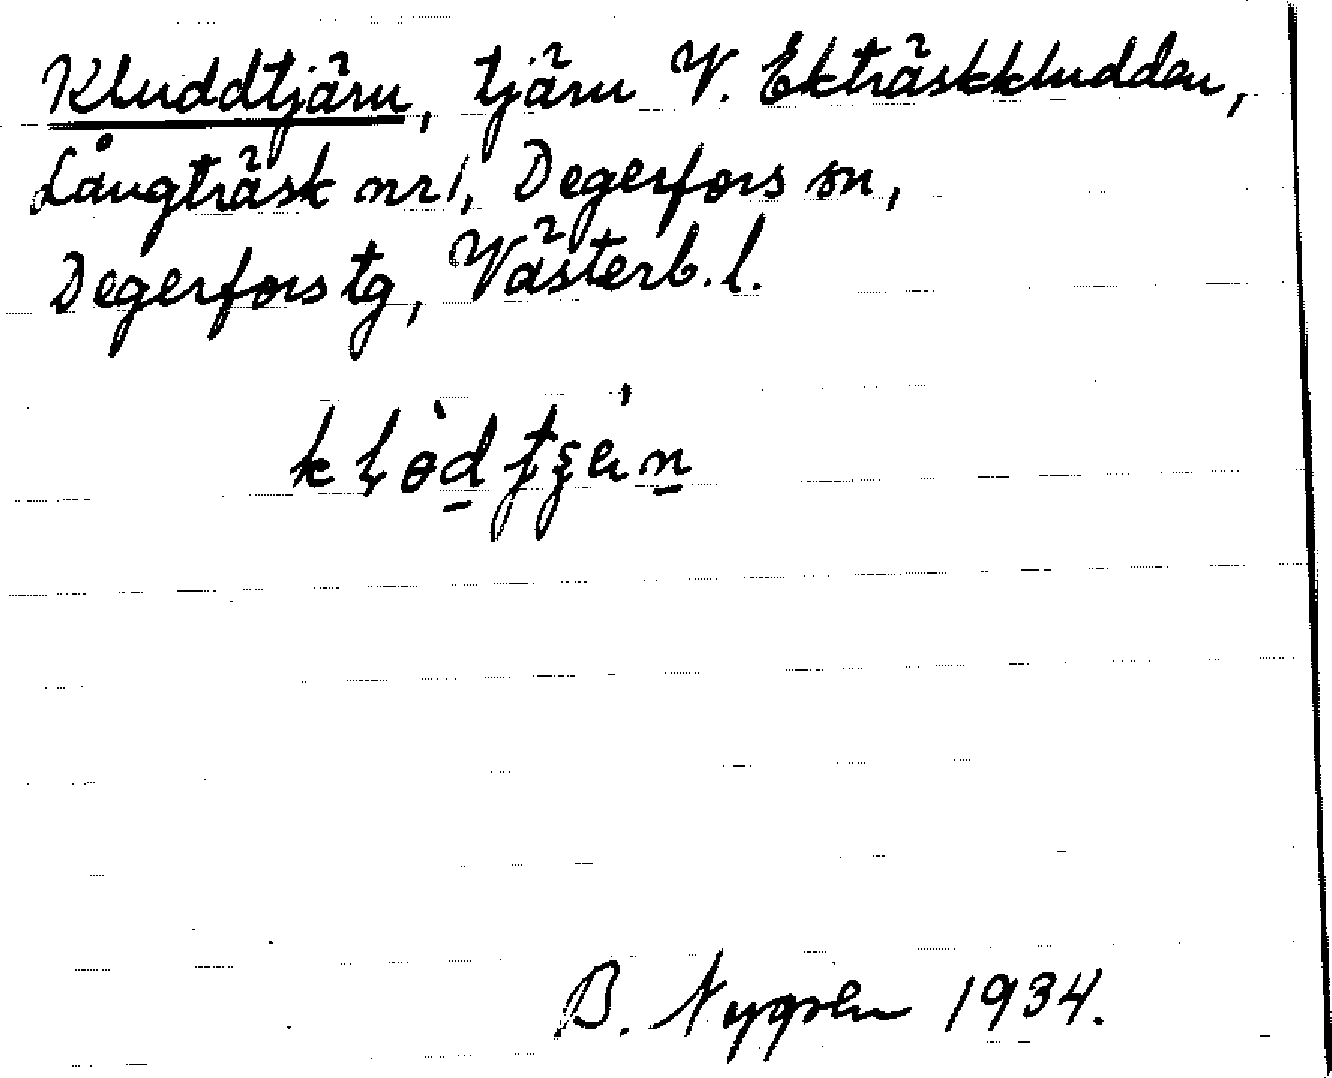 Kluddtjärn, tjärn V. Ekträskkludden,
Långträsk nr 1, Degerfors sn,
Degerfors tg, Västerb. l.
B. Nygren 1934.